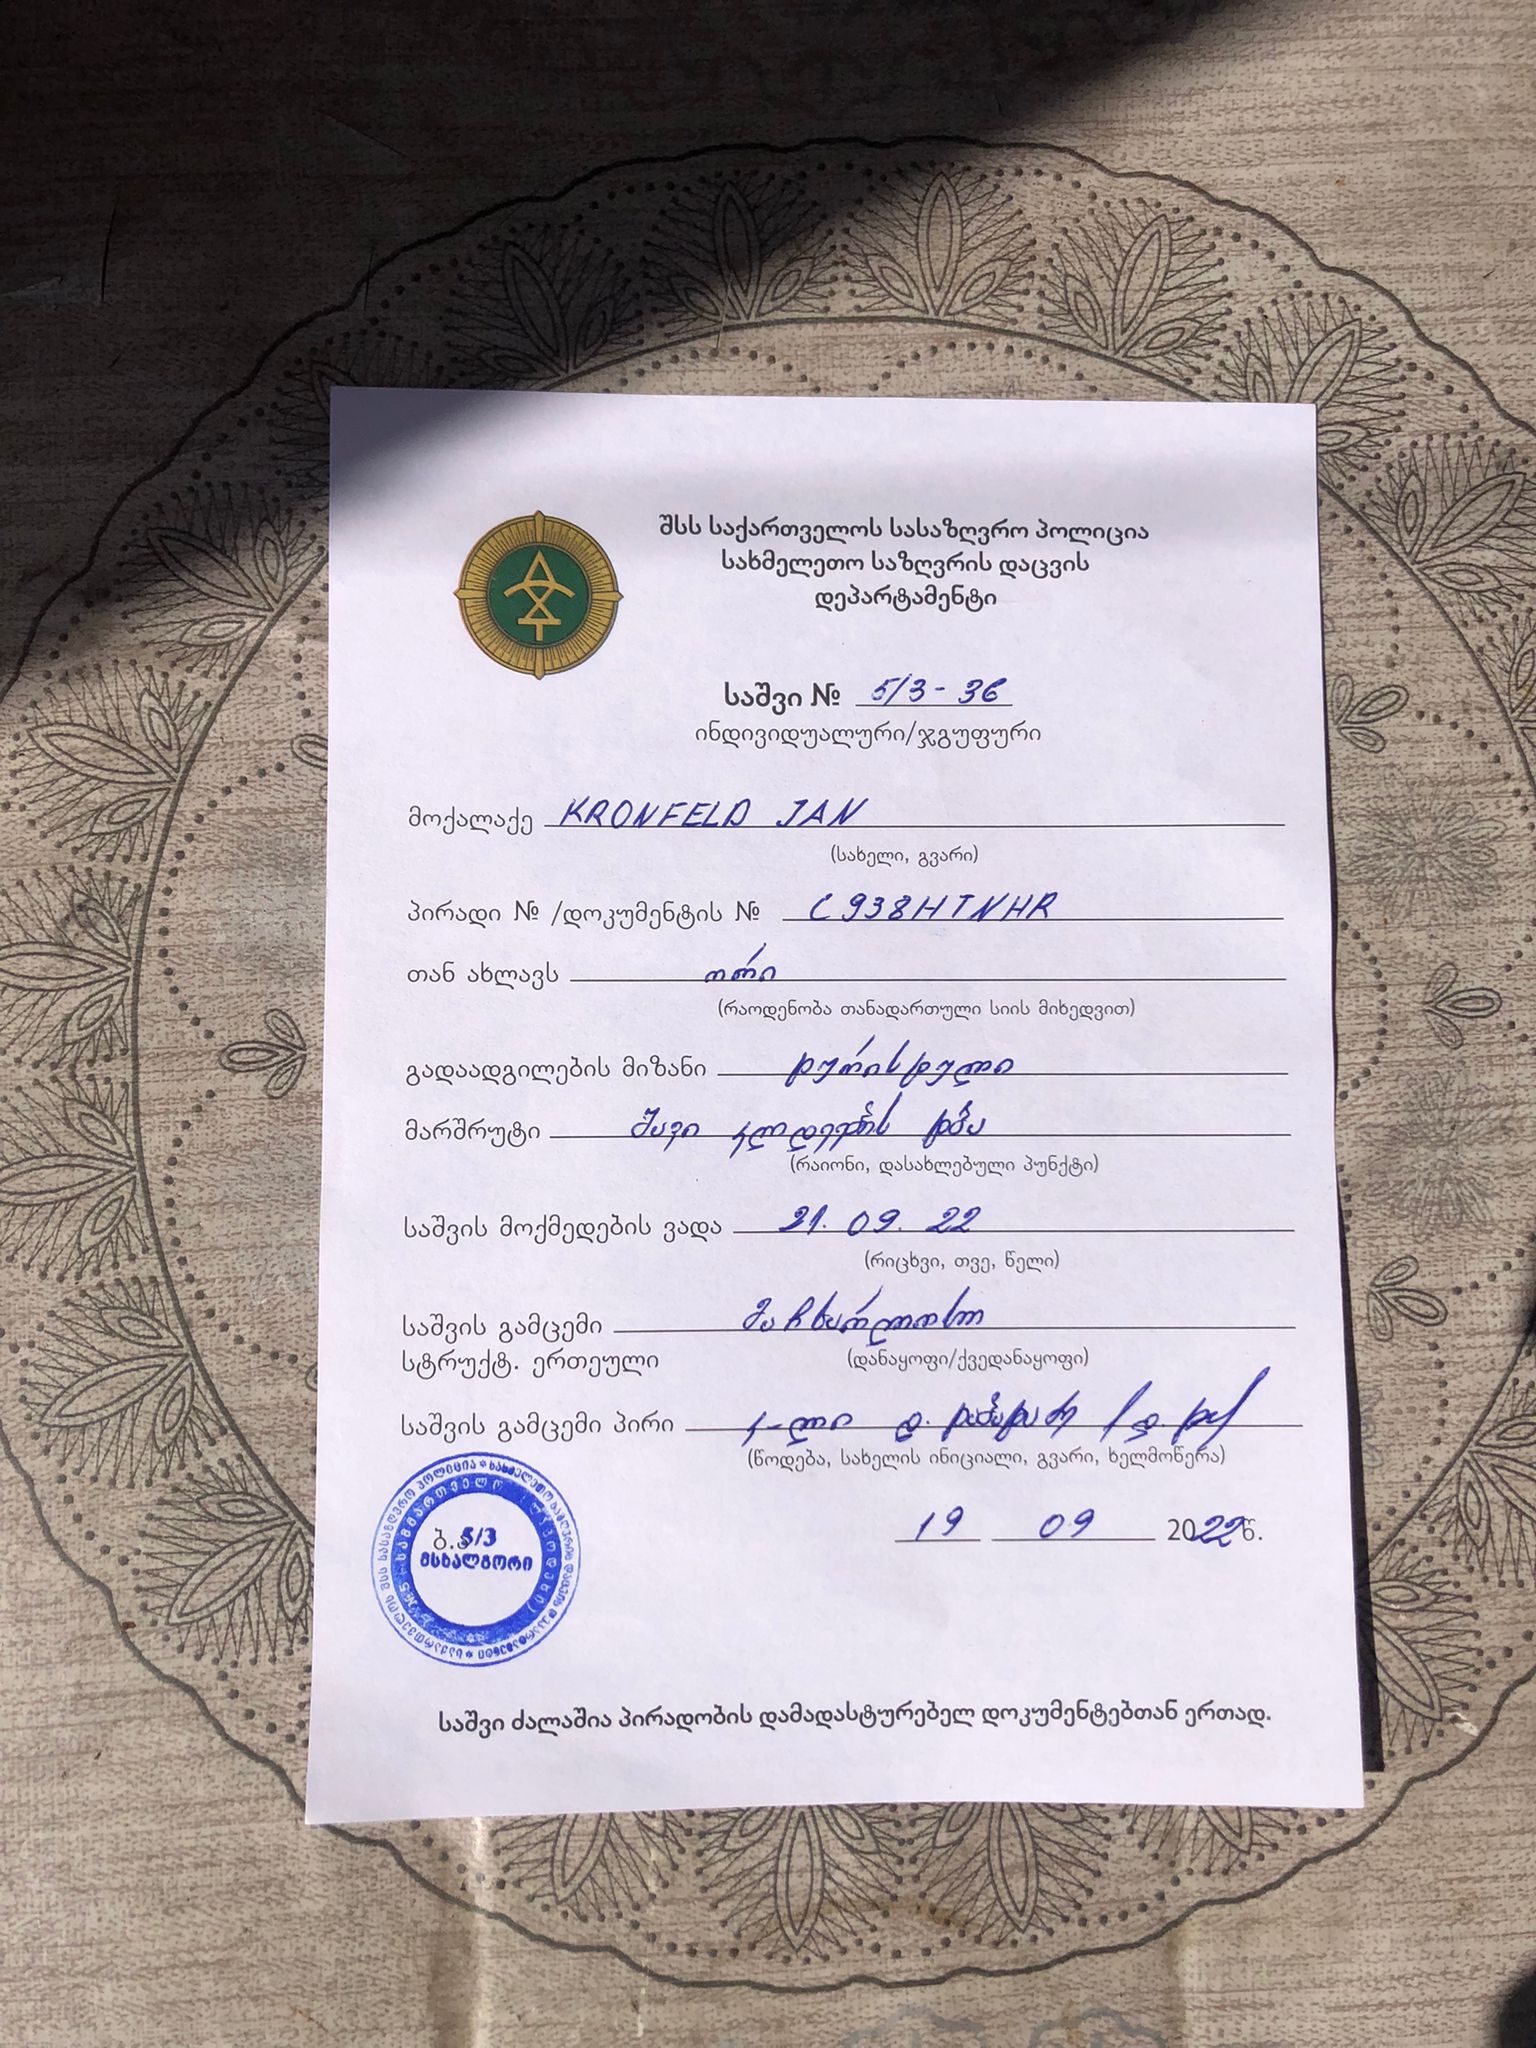 შსს საქართველოს სასაზღვრო პოლიცია
სახმელეთო საზღვრის დაცვის
დეპარტამენტი
საშვი № 5/3 - 36
ინდივიდუალური/ჯგუფური
მოქალაქე KRONFELD JAN
(სახელი, გვარი)
პირადი № /დოკუმენტის № C938HTNHR
თან ახლავს ორი
(რაოდენობა თანადართული სიის მიხედვით)
გადაადგილების მიზანი ტურისტული
მარშრუტი შავი კლდეების ტბა
(რაიონი, დასახლებული პუნქტი)
საშვის მოქმედების ვადა 21. 09. 22
(რიცხვი, თვე, წელი)
საშვის გამცემი
სტრუქტ. ერთეული
(დანაყოფი/ქვედანაყოფი)
საშვის გამცემი პირი
(წოდება, სახელის ინიციალი, გვარი, ხელმოწერა)
19 09 2022წ.
ბ. 5/3
საშვი ძალაშია პირადობის დამადასტურებელ დოკუმენტებთან ერთად.